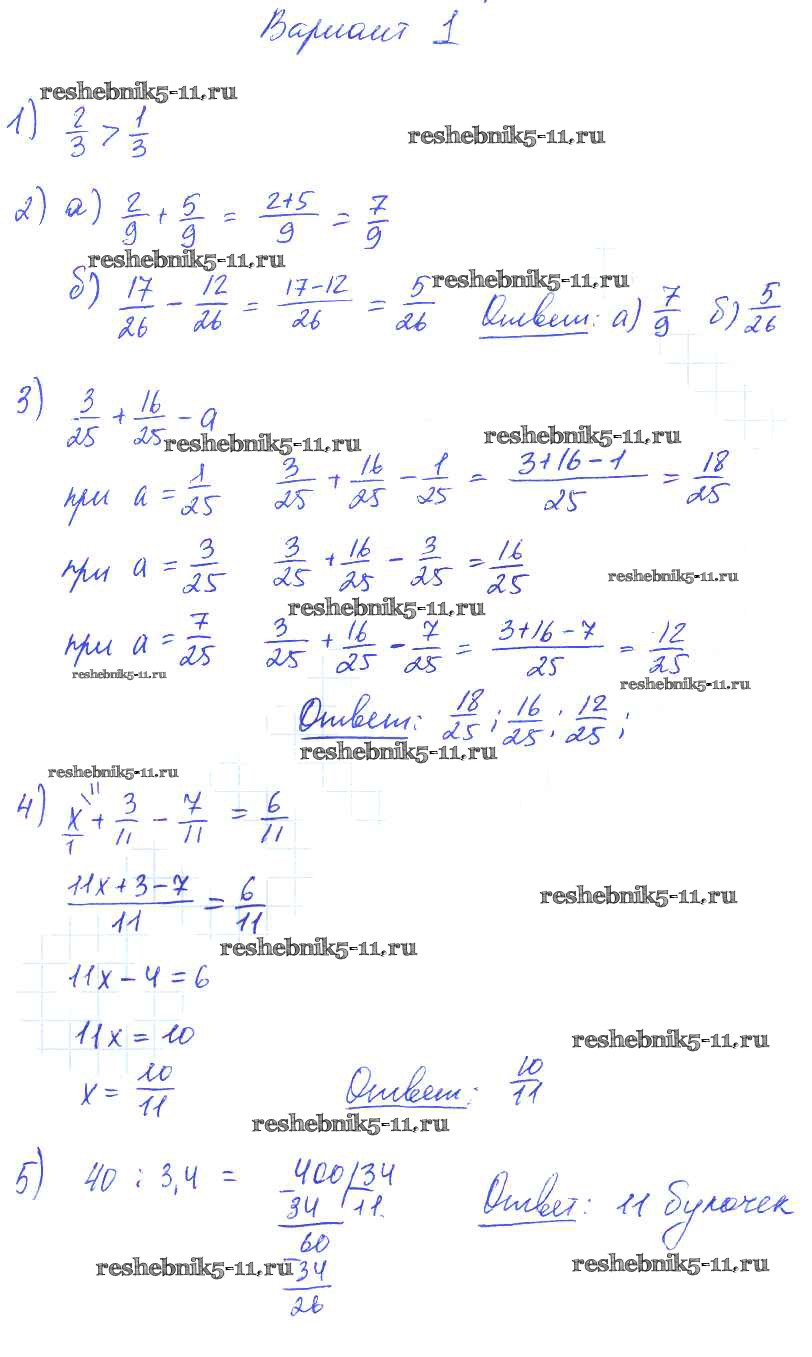 Вариант 1
reshebnik5-11.ru
1) 2/3 > 1/3
reshebnik5-11.ru
2) а) 2/9 + 5/9 = (2+5)/9 = 7/9
reshebnik5-11.ru
reshebnik5-11.ru
б) 17/26 − 12/26 = (17−12)/26 = 5/26 Ответ: а) 7/9 б) 5/26
3) 3/25 + 16/25 − a
reshebnik5-11.ru
reshebnik5-11.ru
при a = 1/25 3/25 + 16/25 − 1/25 = (3+16−1)/25 = 18/25
при a = 3/25 3/25 + 16/25 − 3/25 = 16/25
reshebnik5-11.ru
reshebnik5-11.ru
при a = 7/25 3/25 + 16/25 − 7/25 = (3+16−7)/25 = 12/25
reshebnik5-11.ru
reshebnik5-11.ru
Ответ: 18/25; 16/25; 12/25;
reshebnik5-11.ru
reshebnik5-11.ru
4) x/1 \11 + 3/11 − 7/11 = 6/11
(11x+3−7)/11 = 6/11
reshebnik5-11.ru
reshebnik5-11.ru
11x − 4 = 6
11x = 10
reshebnik5-11.ru
x = 10/11 Ответ: 10/11
reshebnik5-11.ru
5) 40 : 3,4 = 400 | 34
−34 11.
60
−34
26
Ответ: 11 булочек
reshebnik5-11.ru
reshebnik5-11.ru